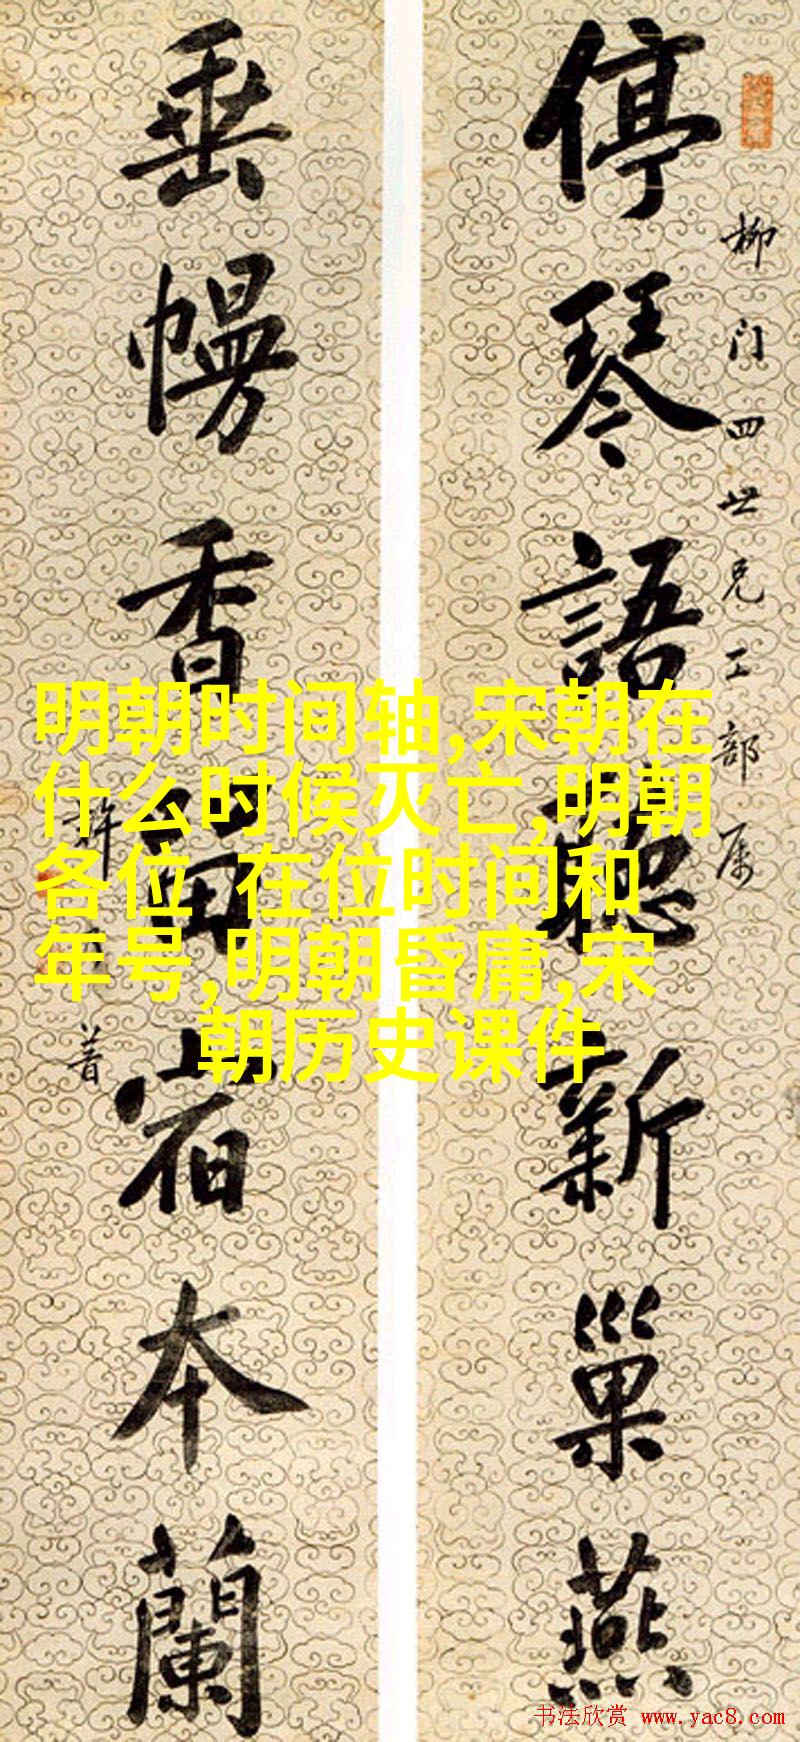 停琴語聽新巢燕
柳门四世兄工部属
垂幔香留宿本蘭
許
著
明朝时间轴,宋朝在
什么时候灭亡,明朝
各位 在位时间和
年号,明朝昏庸,宋
朝历史课件
书法欣赏 www.yac8.com